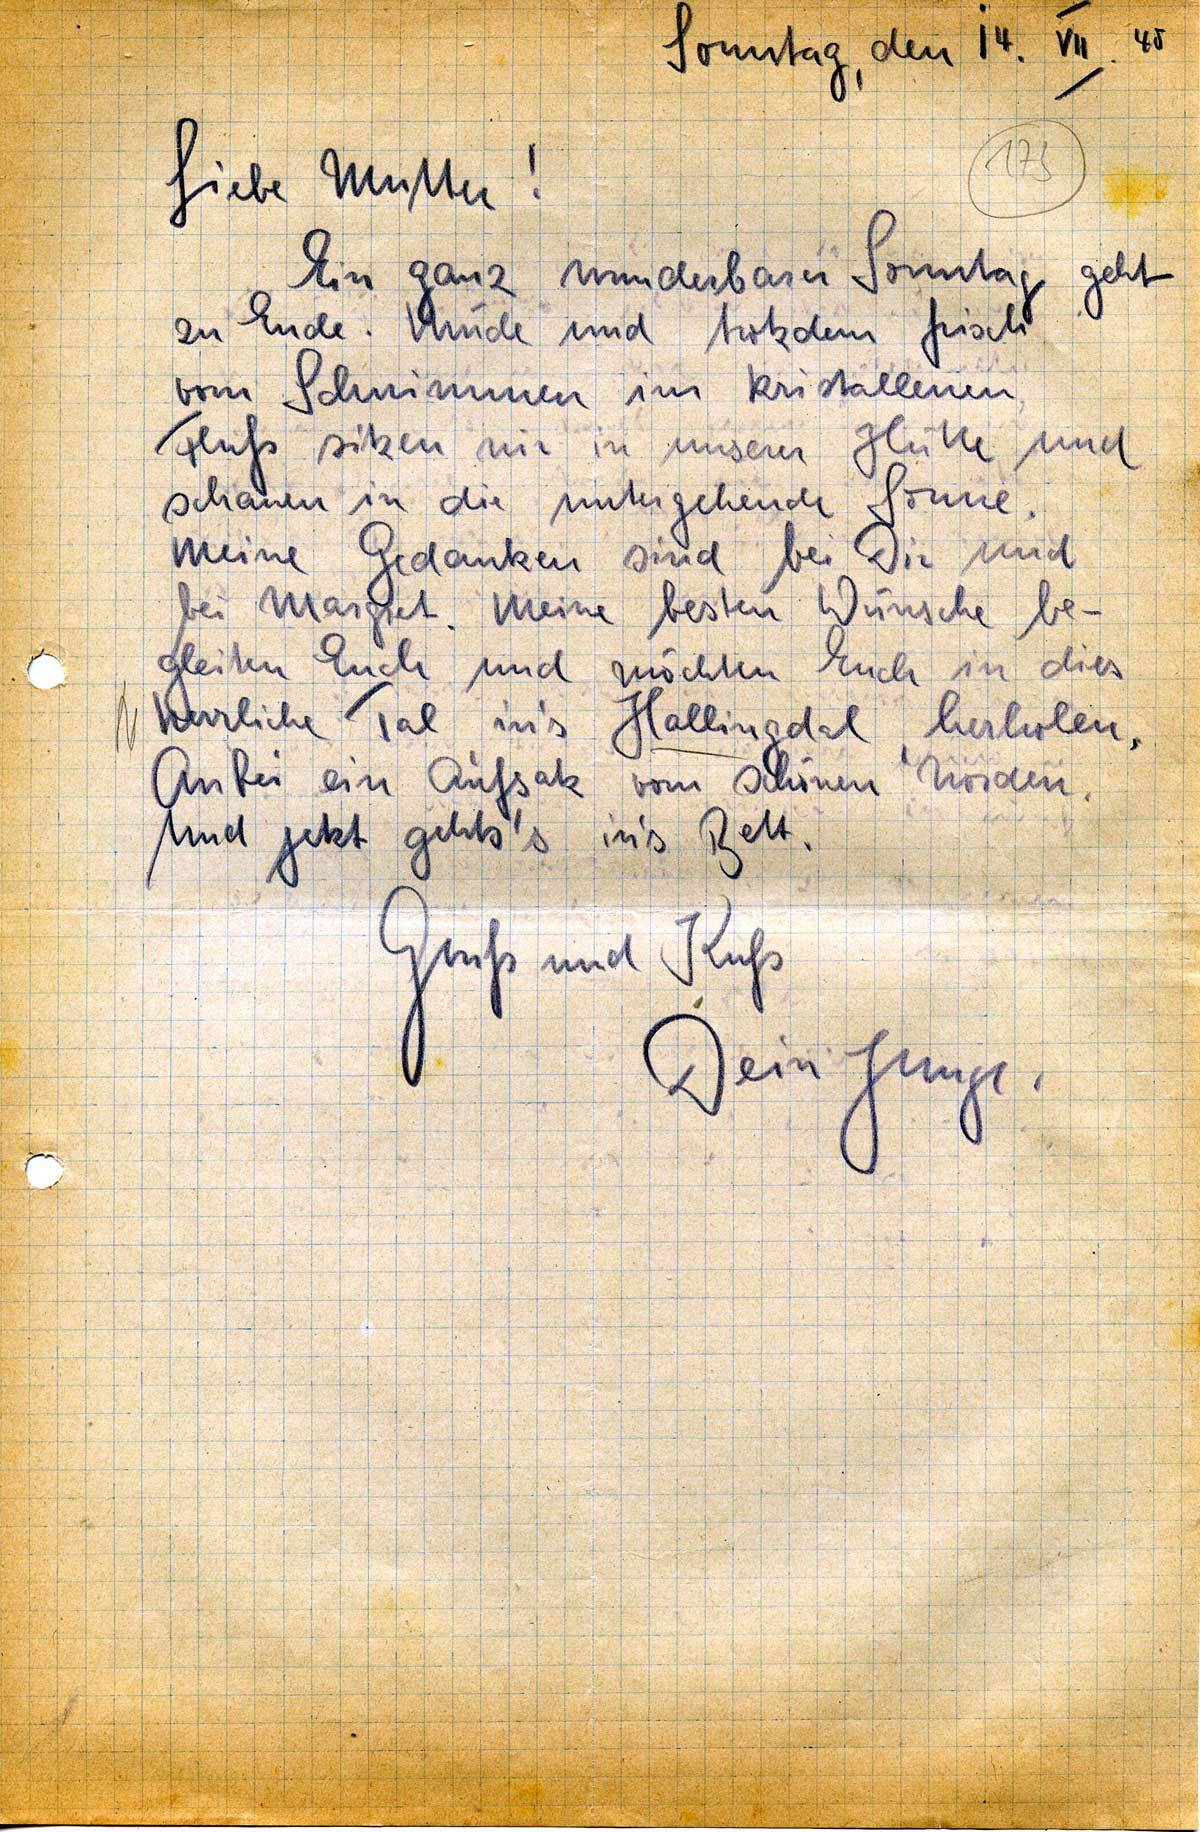 Sonntag, den 14. VII. 40
173
Liebe Mutter!
Ein ganz wunderbarer Sonntag geht
zu Ende. Müde und trotzdem frisch
vom Schwimmen im kristallenen
Fluß sitzen wir in unserer Hütte und
schauen in die untergehende Sonne.
Meine Gedanken sind bei Dir und
bei Margret. Meine besten Wünsche be-
gleiten Euch und möchten Euch in dies
herrliche Tal in's Hallingdal herholen.
Anbei ein Aufsatz vom schönen Norden.
Und jetzt geht's in's Bett.
Gruß und Kuß
Dein Junge.